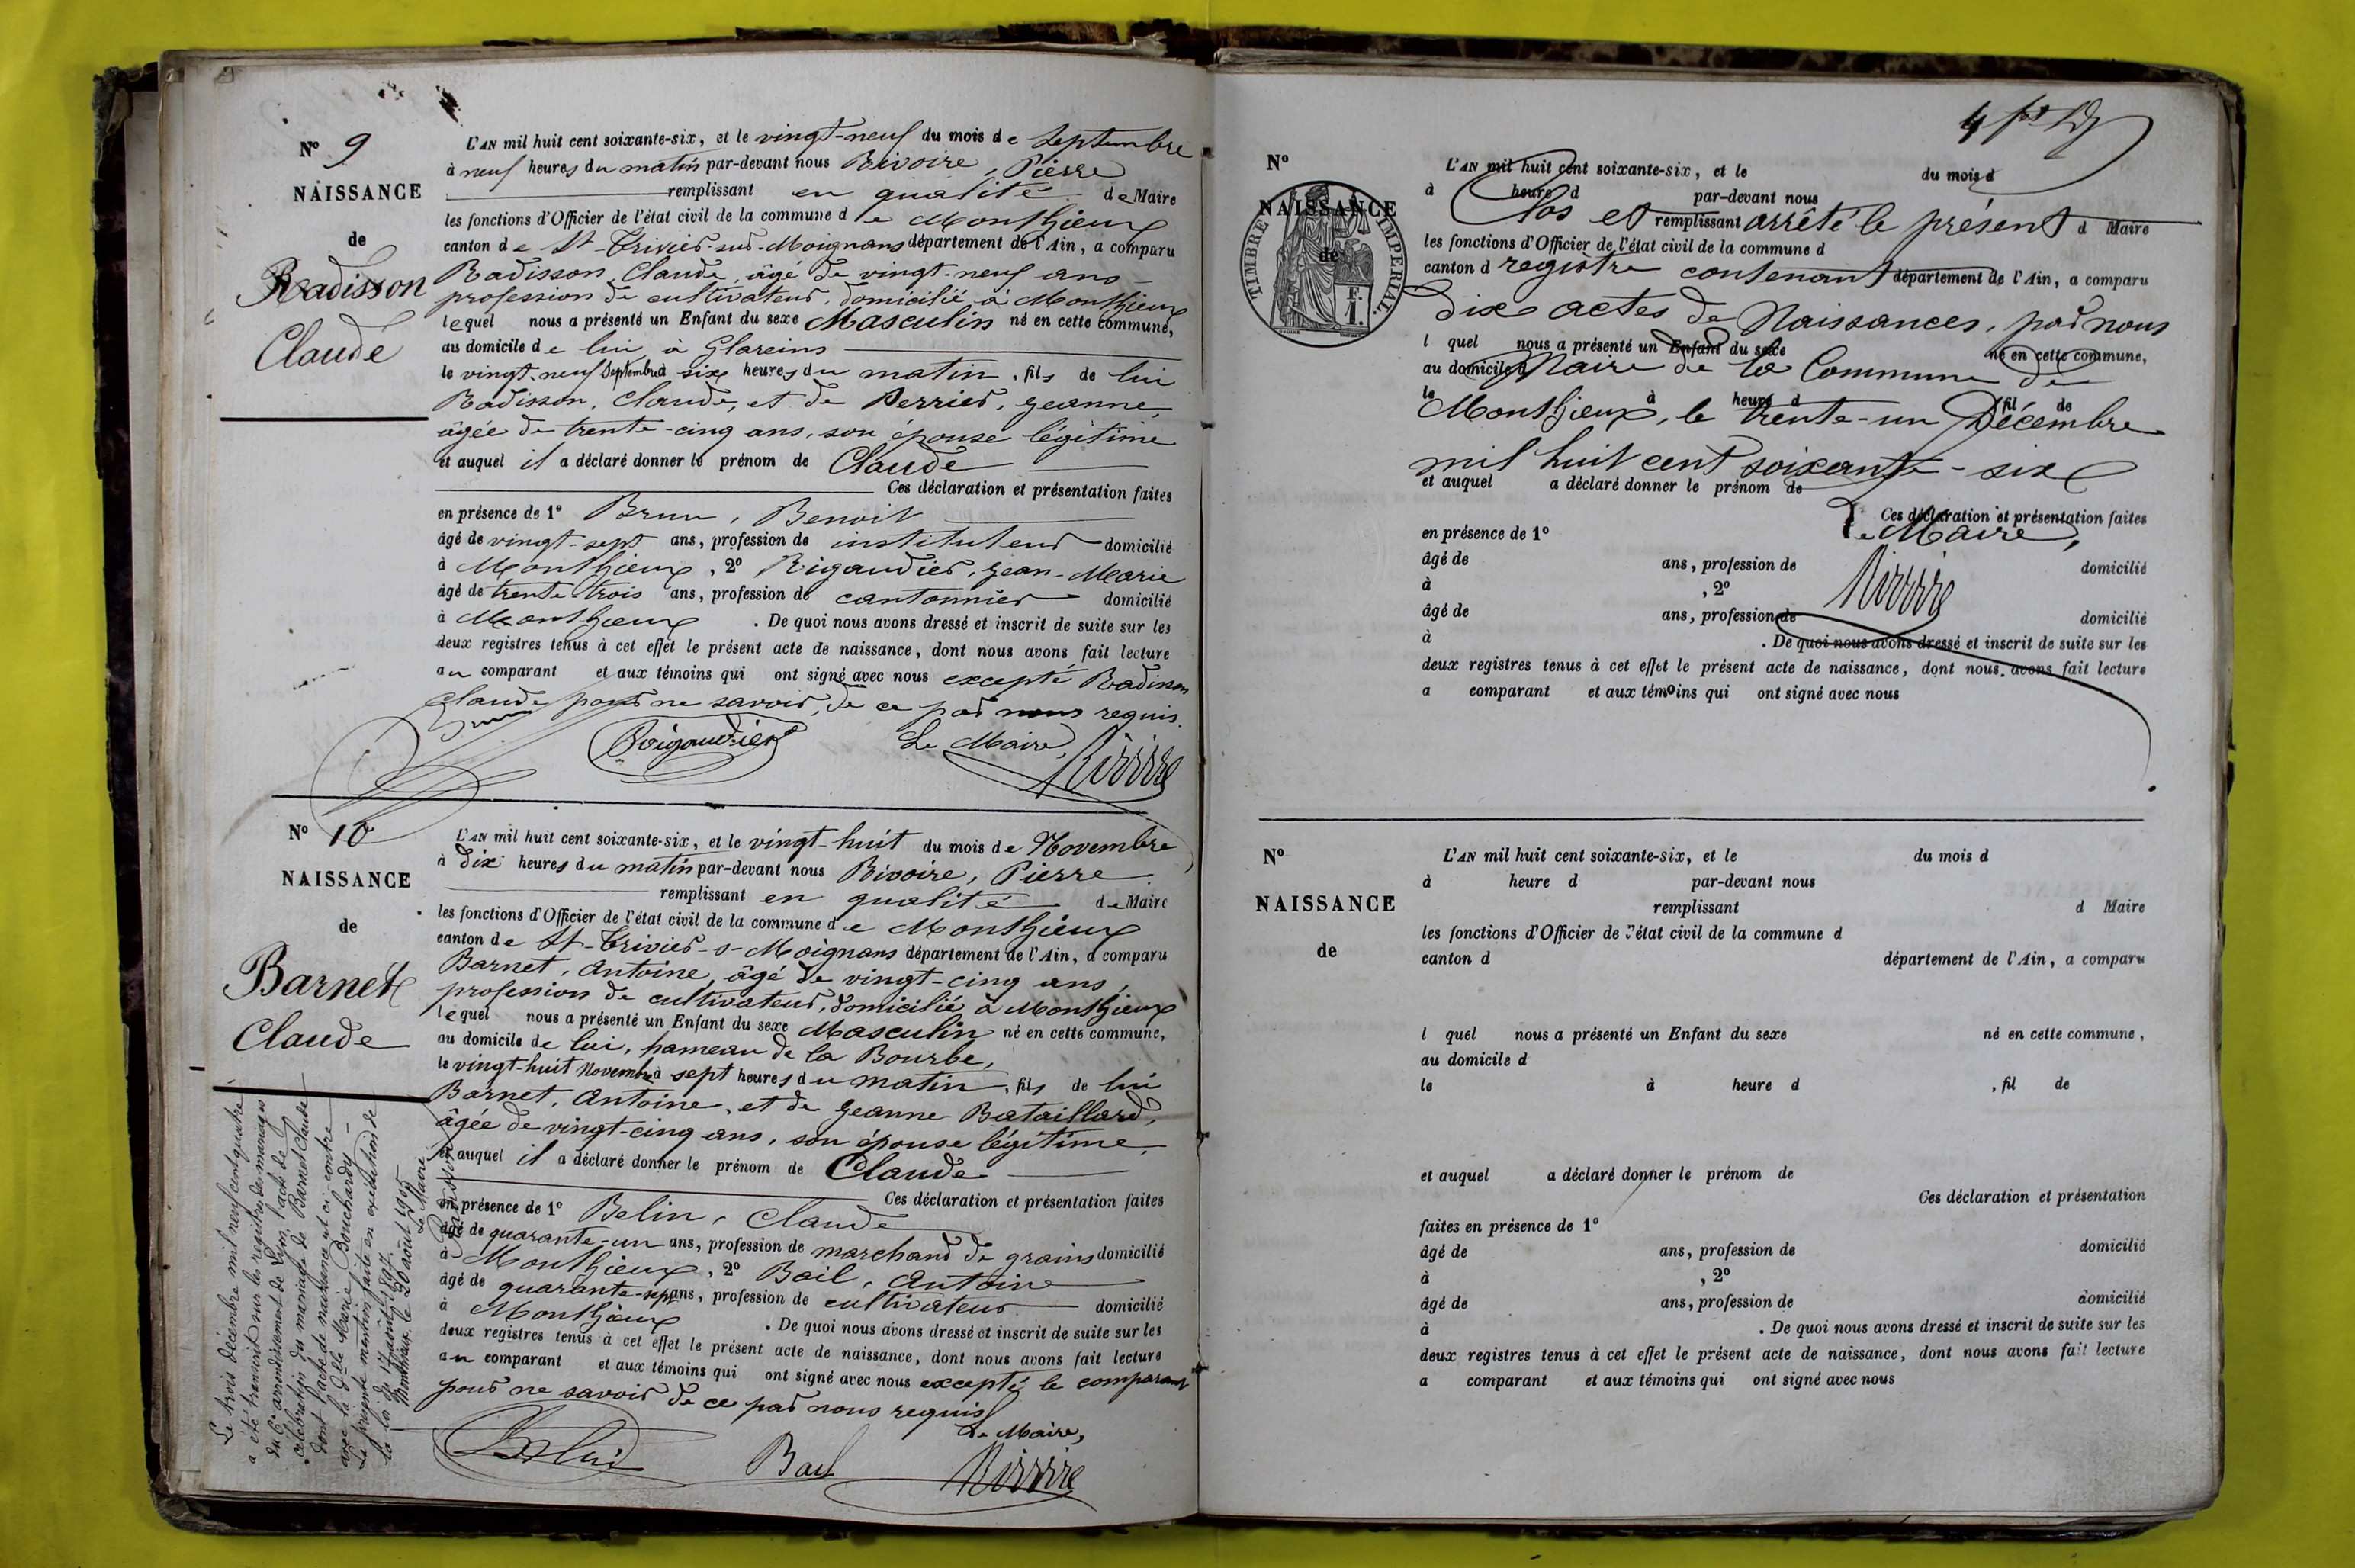 N° 9
NAISSANCE
de
Radisson
Claude
L'AN mil huit cent soixante-six, et le vingt-neuf du mois de Septembre
à neuf heures du matin par-devant nous Rivoire, Pierre
remplissant en qualité de Maire
les fonctions d'Officier de l'état civil de la commune de Monthieux
canton de St-Trivier-sur-Moignans département de l'Ain, a comparu
Radisson, Claude, âgé de vingt-neuf ans
profession de cultivateur, domicilié à Monthieux
lequel nous a présenté un Enfant du sexe Masculin né en cette commune,
au domicile de lui à Glareins
le vingt-neuf Septembre à six heures du matin, fils de lui
Radisson, Claude, et de Perrier, Jeanne,
âgée de trente-cinq ans, son épouse légitime
et auquel il a déclaré donner le prénom de Claude
Ces déclaration et présentation faites
en présence de 1° Brun, Benoit
âgé de vingt-sept ans, profession de instituteur domicilié
à Monthieux, 2° Rigaudier, Jean-Marie
âgé de trente-trois ans, profession de cantonnier domicilié
à Monthieux. De quoi nous avons dressé et inscrit de suite sur les
deux registres tenus à cet effet le présent acte de naissance, dont nous avons fait lecture
au comparant et aux témoins qui ont signé avec nous excepté Radisson
Claude pour ne savoir, de ce par nous requis.
Brun Rigaudier Le Maire, Rivoire
N° 10
NAISSANCE
de
Barnet
Claude
L'AN mil huit cent soixante-six, et le vingt-huit du mois de Novembre
à dix heures du matin par-devant nous Rivoire, Pierre
remplissant en qualité de Maire
les fonctions d'Officier de l'état civil de la commune de Monthieux
canton de St-Trivier-s-Moignans département de l'Ain, a comparu
Barnet, Antoine, âgé de vingt-cinq ans,
profession de cultivateur, domicilié à Monthieux
lequel nous a présenté un Enfant du sexe Masculin né en cette commune,
au domicile de lui, hameau de la Bourbe,
le vingt-huit Novembre à sept heures du matin, fils de lui
Barnet, Antoine, et de Jeanne Bataillard,
âgée de vingt-cinq ans, son épouse légitime,
et auquel il a déclaré donner le prénom de Claude
Ces déclaration et présentation faites
en présence de 1° Belin, Claude
âgé de quarante-un ans, profession de marchand de grains domicilié
à Monthieux, 2° Bail, Antoine
âgé de quarante-sept ans, profession de cultivateur domicilié
à Monthieux. De quoi nous avons dressé et inscrit de suite sur les
deux registres tenus à cet effet le présent acte de naissance, dont nous avons fait lecture
au comparant et aux témoins qui ont signé avec nous excepté le comparant
pour ne savoir de ce par nous requis
Le Maire,
Belin Bail Rivoire
Le trois décembre mil neuf cent quatre
a été transcrit sur les registres des mariages
du 6e arrondissement de Lyon l'acte de
célébration du mariage de Barnet Claude
dont l'acte de naissance est ci-contre
avec la dlle Marie Bouchardy
La présente mention faite en exécution de
la loi du 17 août 1897.
Monthieux, le 20 août 1905
Le Maire
Radisson
N°
NAISSANCE
de
TIMBRE IMPERIAL
F.
1.
L'AN mil huit cent soixante-six, et le du mois d
à heure d par-devant nous
Clos et remplissant arrêté le présent d Maire
les fonctions d'Officier de l'état civil de la commune d
canton d registre contenant département de l'Ain, a comparu
dix actes de Naissances, par nous
l quel nous a présenté un Enfant du sexe né en cette commune,
au domicile d Maire de la Commune de
le à heure d , fil de
Monthieux, le trente-un Décembre
mil huit cent soixante-six
et auquel a déclaré donner le prénom de
Ces déclaration et présentation faites
en présence de 1° Le Maire,
âgé de ans, profession de domicilié
à , 2° Rivoire
âgé de ans, profession de domicilié
à . De quoi nous avons dressé et inscrit de suite sur les
deux registres tenus à cet effet le présent acte de naissance, dont nous avons fait lecture
a comparant et aux témoins qui ont signé avec nous
N°
NAISSANCE
de
L'AN mil huit cent soixante-six, et le du mois d
à heure d par-devant nous
remplissant d Maire
les fonctions d'Officier de l'état civil de la commune d
canton d département de l'Ain, a comparu
l quel nous a présenté un Enfant du sexe né en cette commune,
au domicile d
le à heure d , fil de
et auquel a déclaré donner le prénom de
Ces déclaration et présentation
faites en présence de 1°
âgé de ans, profession de domicilié
à , 2°
âgé de ans, profession de domicilié
à . De quoi nous avons dressé et inscrit de suite sur les
deux registres tenus à cet effet le présent acte de naissance, dont nous avons fait lecture
a comparant et aux témoins qui ont signé avec nous